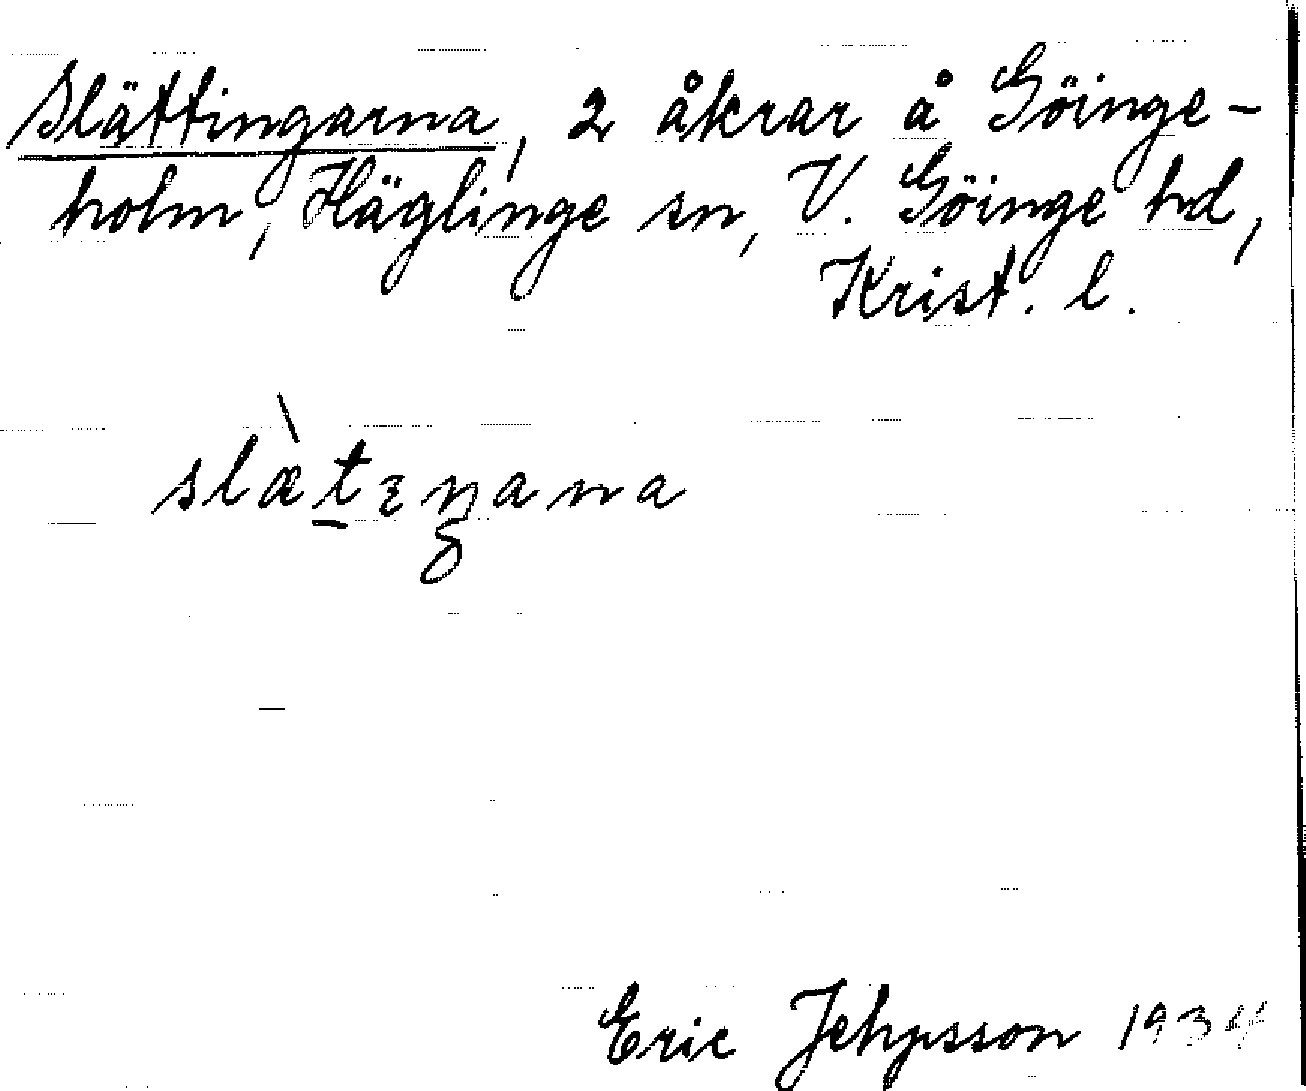 Slättingarna, 2 åkrar å Göinge-
holm, Häglinge sn, V. Göinge hd,
Krist. l.
slæ̀t̠ɛŋana
Eric Jehpsson 1934